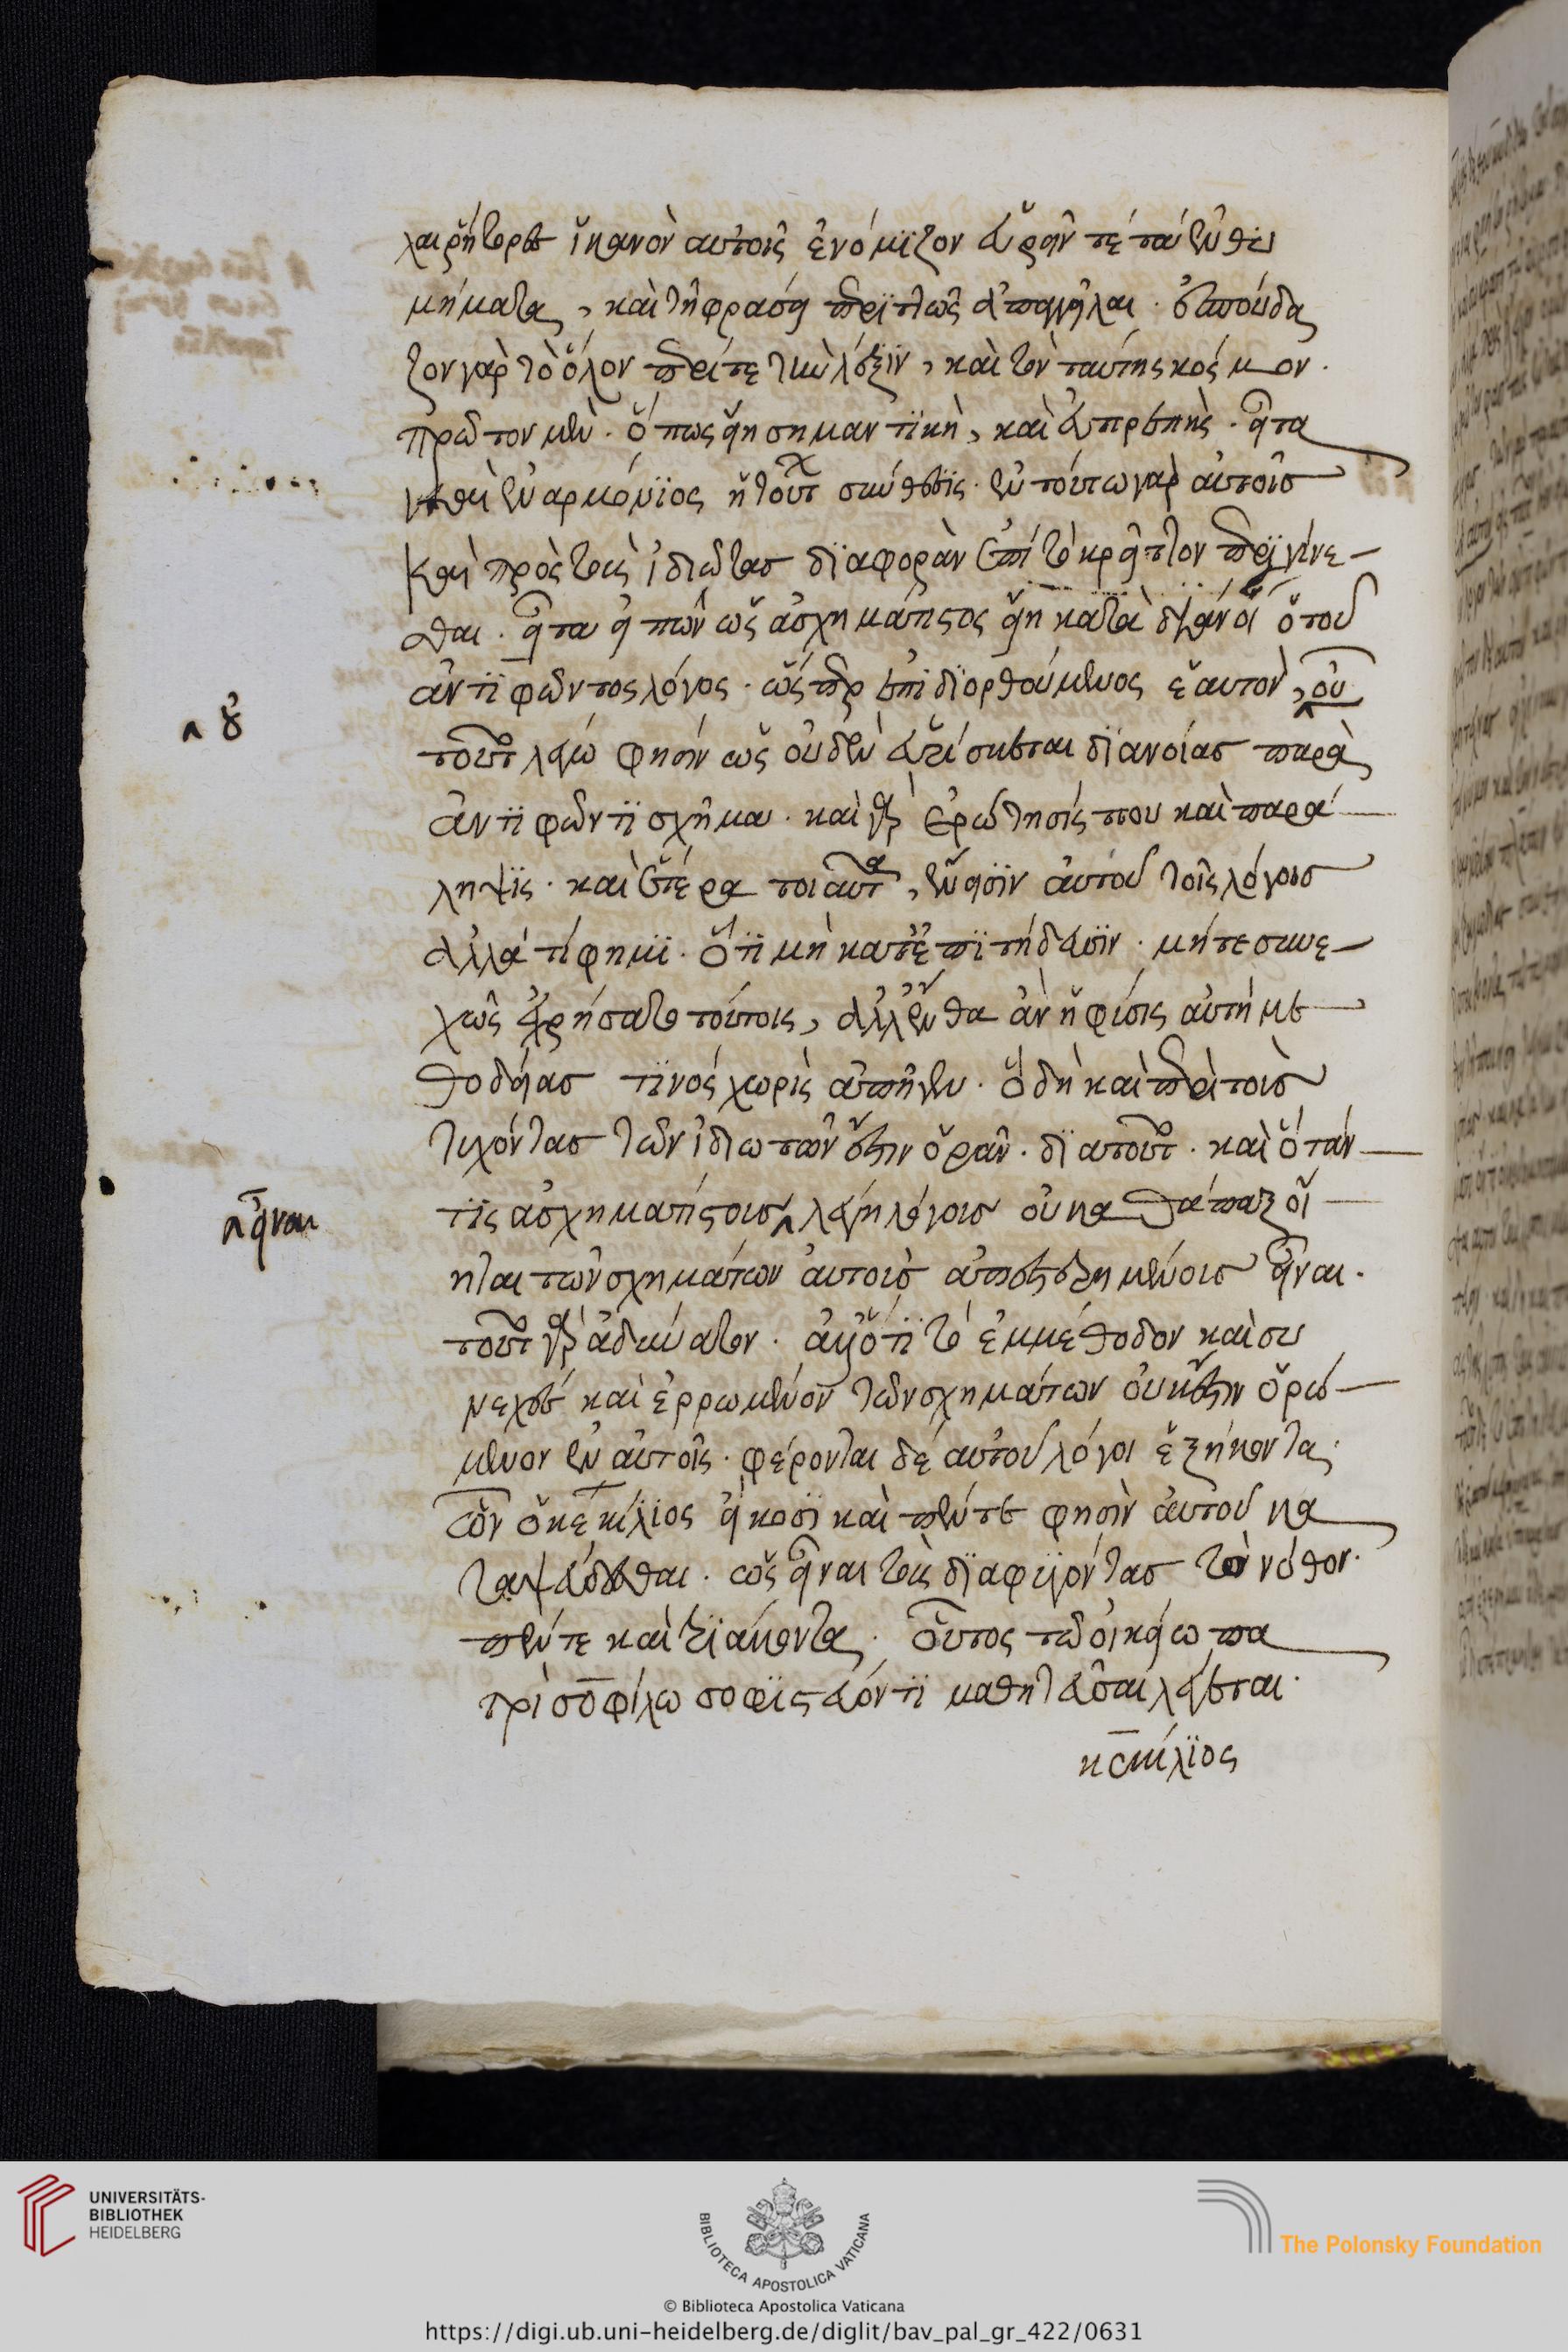 λαι ῥήτορες ἱκανὸν αὐτοῖς ἐνόμιζον εὑρεῖν τε τὰ ἐνθυ
μήματα, καὶ τῇ φράσει περιττῶς ἀπαγγεῖλαι. ἐσπούδα
ζον γὰρ τὸ ὅλον περί τε τὴν λέξιν, καὶ τὸν ταύτης κόσμον.
πρῶτον μὲν. ὅπως εἴη σημαντικὴ, καὶ εὐπρεπής. εἶτα
καὶ ἐναρμόνιος ἡ τούτων σύνθεσις. ἐν τούτω γὰρ αὐτοῖς
καὶ πρὸς τοὺς ἰδιώτας διαφορὰν ἐπὶ τὸ κρεῖττον περιγίνε
σθαι. εἶτα εἰπὼν ὡς ἀσχημάτιστος εἴη κατὰ διάνοι ὁ τοῦ
ἀντιφῶντος λόγος. ὥσπερ ἐπιδιορθούμενος ἑαυτόν, οὐ
τοῦτο λέγω φησὶν ὡς οὐδὲν εὑρίσκεται διανοίας παρὰ
ἀντιφῶντι σχῆμα. καὶ γὰρ ἐρώτησίς που καὶ παρά
ληψις. καὶ ἕτερα τοιαῦτα, ἔνεισιν αὐτοῦ τοῖς λόγοις
ἀλλὰ τί φημι. ὅτι μὴ κατ' ἐπιτήδευσιν. μήτε συνε
χῶς ἐχρήσατο τούτοις, ἀλλ' ἔνθα ἂν ἡ φύσις αὐτὴ με
θοδείας τινός χωρὶς ἀπῆγεν. ὃ δὴ καὶ περὶ τοὺς
τυχόντας τῶν ἰδιωτῶν ἔστιν ὁρᾶν. διατοῦτο. καὶ ὅταν
τις ἀσχηματίστους λέγη λόγους οὐ καθάπαξ οἴ
ηται τῶν σχημάτων αὐτοὺς ἀπεστερημένους εἶναι.
τοῦτο γὰρ ἀδύνατον. ἀλλ' ὅτι τὸ ἐμμέθοδον καὶ συ
νεχὲς καὶ ἐρρωμένον τῶν σχημάτων οὐκ ἔστιν ὁρώ
μενον ἐν αὐτοῖς. φέρονται δὲ αὐτοῦ λόγοι ἑξήκοντα.
ὧν ὁ κεκίλιος εἴκοσι καὶ πέντε φησὶν αὐτοῦ κα
ταψεύδεσθαι. ὡς εἶναι τοὺς διαφυγόντας τὸ νόθον.
πέντε καὶ τριάκοντα. οὗτος τῶ οἰκείω πα
τρὶ σοφίλω σοφιστεύοντι μαθητεῦσαι λέγεται.
κεκίλιος
οὐ
εἶναι
UNIVERSITÄTS-
BIBLIOTHEK
HEIDELBERG
BIBLIOTECA APOSTOLICA VATICANA
The Polonsky Foundation
© Biblioteca Apostolica Vaticana
https://digi.ub.uni-heidelberg.de/diglit/bav_pal_gr_422/0631